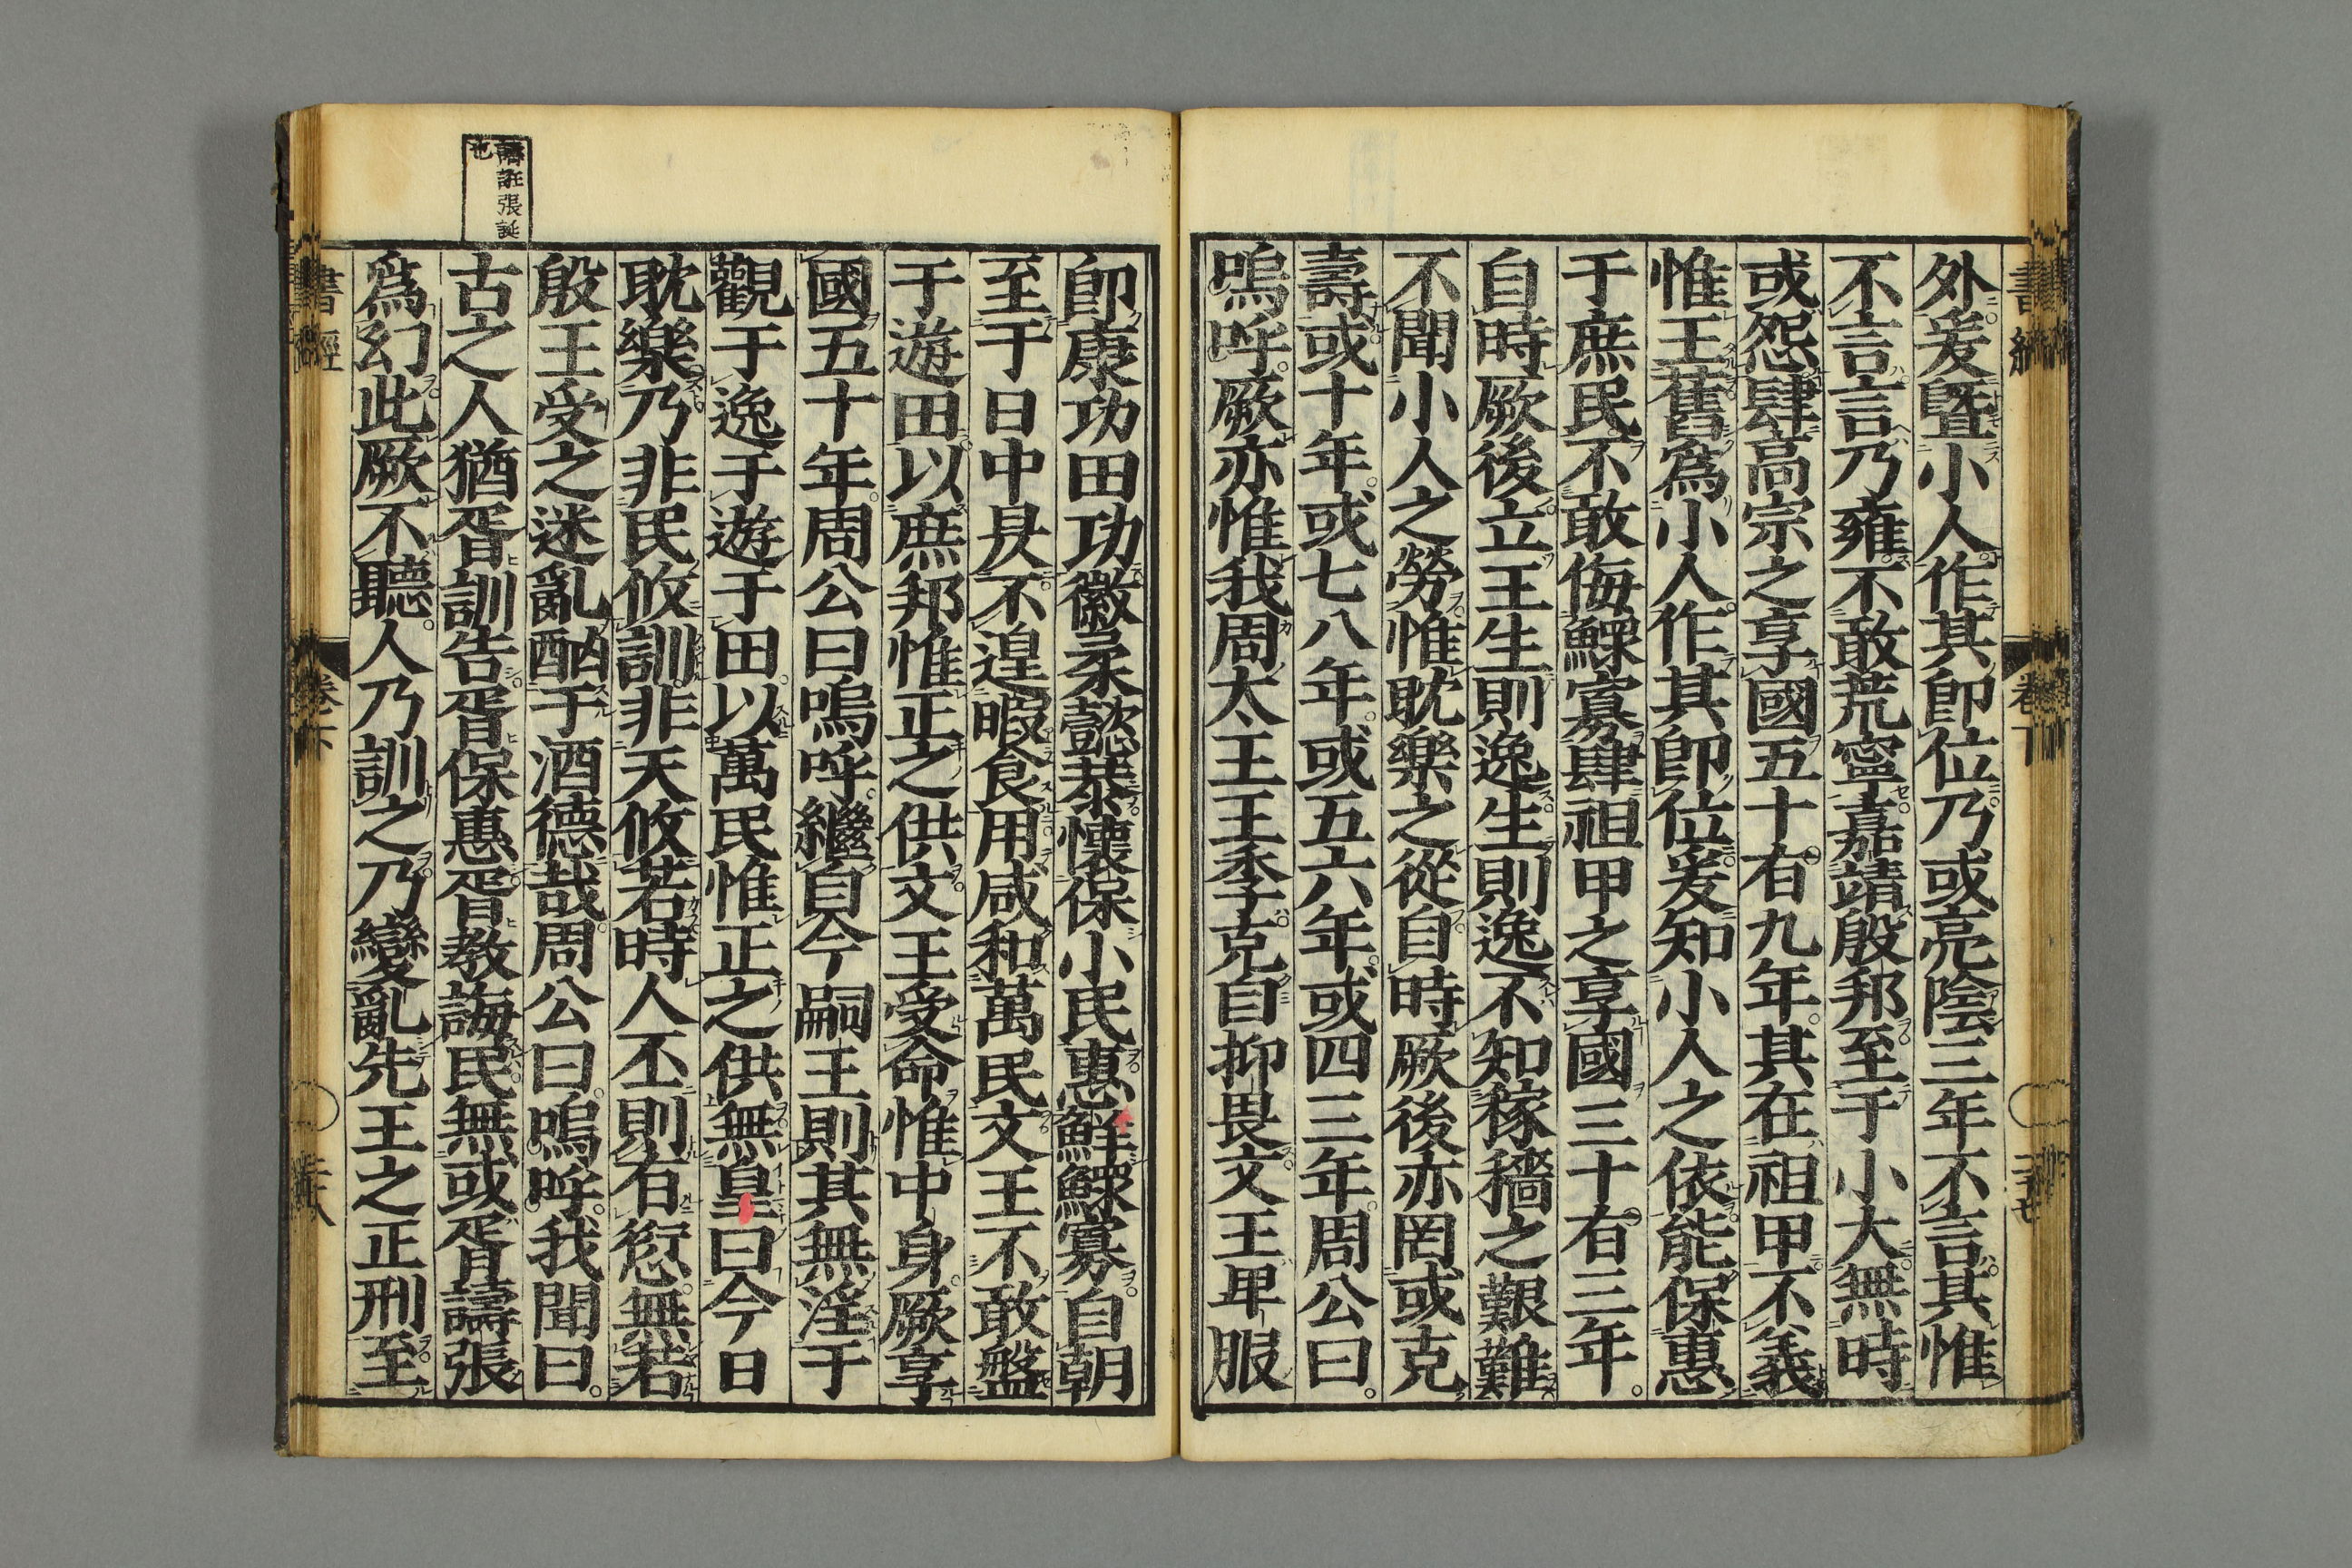 外爰曁小人作其卽位乃或亮陰三年不言其惟
不言言乃雍不敢荒寧嘉靖殷邦至于小大無時
或怨肆高宗之享國五十有九年其在祖甲不義
惟王舊爲小人作其卽位爰知小人之依能保惠
于庶民不敢侮鰥寡肆祖甲之享國三十有三年
自時厥後立王生則逸生則逸不知稼穡之艱難
不聞小人之勞惟耽樂之從自時厥後亦罔或克
壽或十年或七八年或五六年或四三年周公曰
嗚呼厥亦惟我周太王王季克自抑畏文王卑服
卽康功田功徽柔懿恭懷保小民惠鮮鰥寡自朝
至于日中昃不遑暇食用咸和萬民文王不敢盤
于遊田以庶邦惟正之供文王受命惟中身厥享
國五十年周公曰嗚呼繼自今嗣王則其無淫于
觀于逸于遊于田以萬民惟正之供無皇曰今日
耽樂乃非民攸訓非天攸若時人丕則有愆無若
殷王受之迷亂酗于酒德哉周公曰嗚呼我聞曰
古之人猶胥訓告胥保惠胥教誨民無或胥譸張
爲幻此厥不聽人乃訓之乃變亂先王之正刑至
譸註張誕
也
書經
卷下